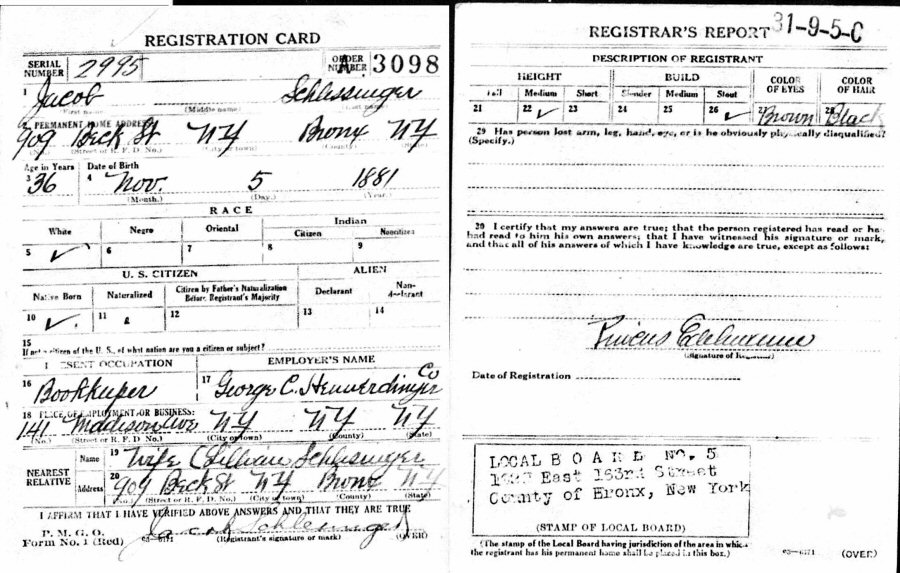 REGISTRATION CARD
SERIAL NUMBER 2995 ORDER NUMBER A 3098
1 Jacob Schlessinger
(Middle name)
2 PERMANENT HOME ADDRESS:
909 Beck St NY Bronx NY
(No.) (Street or R. F. D. No.) (City or town) (County) (State)
Age in Years Date of Birth
3 36 4 Nov. 5 1881
(Month.) (Day.) (Year.)
RACE
White Negro Oriental Indian
Citizen Noncitizen
5 ✓ 6 7 8 9
U. S. CITIZEN ALIEN
Native Born Naturalized Citizen by Father's Naturalization Before Registrant's Majority Declarant Non-declarant
10 ✓ 11 12 13 14
15
If not a citizen of the U. S., of what nation are you a citizen or subject?
PRESENT OCCUPATION EMPLOYER'S NAME
16 Bookkeeper 17 George C. Heuverdinger Co
18 PLACE OF EMPLOYMENT OR BUSINESS:
141 Madison Ave NY NY NY
(No.) (Street or R. F. D. No.) (City or town) (County) (State)
NEAREST RELATIVE
Name 19 Wife (Lillian Schlessinger
Address 20 909 Beck St NY Bronx NY
(No.) (Street or R. F. D. No.) (City or town) (County) (State)
I AFFIRM THAT I HAVE VERIFIED ABOVE ANSWERS AND THAT THEY ARE TRUE
P. M. G. O.
Form No. 1 (Red) 03—6171 Jacob Schlessinger
(Registrant's signature or mark) (OVER)
REGISTRAR'S REPORT 31-9-5-C
DESCRIPTION OF REGISTRANT
HEIGHT BUILD COLOR OF EYES COLOR OF HAIR
Tall Medium Short Slender Medium Stout
21 22 ✓ 23 24 25 26 ✓ 27 Brown 28 Black
29 Has person lost arm, leg, hand, eye, or is he obviously physically disqualified?
(Specify.)
30 I certify that my answers are true; that the person registered has read or has
had read to him his own answers; that I have witnessed his signature or mark,
and that all of his answers of which I have knowledge are true, except as follows:
Pincus
(Signature of Registrar)
Date of Registration
LOCAL BOARD NO. 5
East 163rd Street
County of Bronx, New York
(STAMP OF LOCAL BOARD)
(The stamp of the Local Board having jurisdiction of the area in which
the registrant has his permanent home shall be placed in this box.) 03—6171 (OVER)